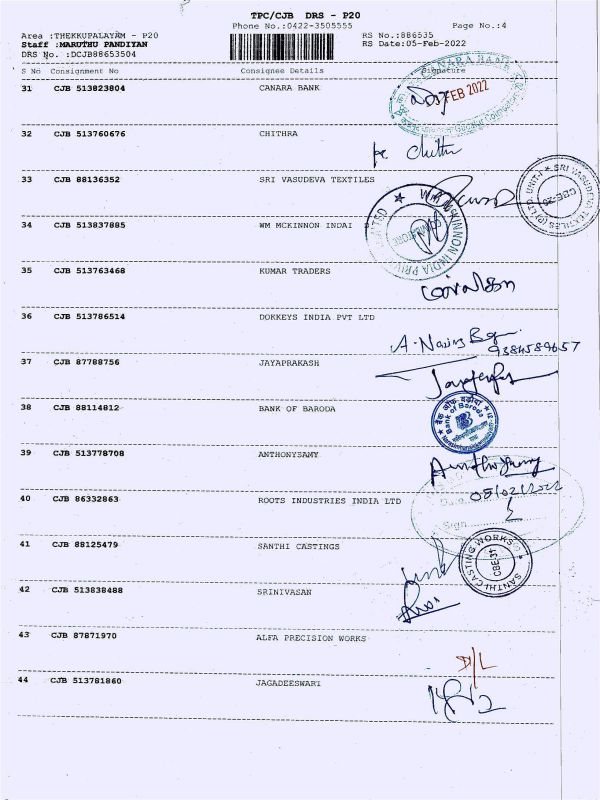 TPC/CJB DRS - P20
Phone No.:0422-3505555 Page No.:4
Area :THEKKUPALAYAM - P20 RS No.:886535
Staff :MARUTHU PANDIYAN RS Date:05-Feb-2022
DRS No. :DCJB88653504
S No Consignment No Consignee Details Signature
31 CJB 513823804 CANARA BANK
CANARA BANK
FEB 2022
32 CJB 513760676 CHITHRA
33 CJB 88136352 SRI VASUDEVA TEXTILES
SRI VASUDEVA TEXTILES (P) LTD. UNIT-I
34 CJB 513837885 WM MCKINNON INDAI
WM MCKINNON INDIA PRIVATE LIMITED
COIMBATORE
35 CJB 513763468 KUMAR TRADERS
36 CJB 513786514 DOKKEYS INDIA PVT LTD
37 CJB 87788756 JAYAPRAKASH
38 CJB 88114812 BANK OF BARODA
बैंक ऑफ़ बड़ौदा
Bank of Baroda
39 CJB 513778708 ANTHONYSAMY
08/02/2022
40 CJB 86332863 ROOTS INDUSTRIES INDIA LTD
Sign
41 CJB 88125479 SANTHI CASTINGS
SANTHI CASTING WORKS
42 CJB 513838488 SRINIVASAN
43 CJB 87871970 ALFA PRECISION WORKS
D/L
44 CJB 513781860 JAGADEESWARI